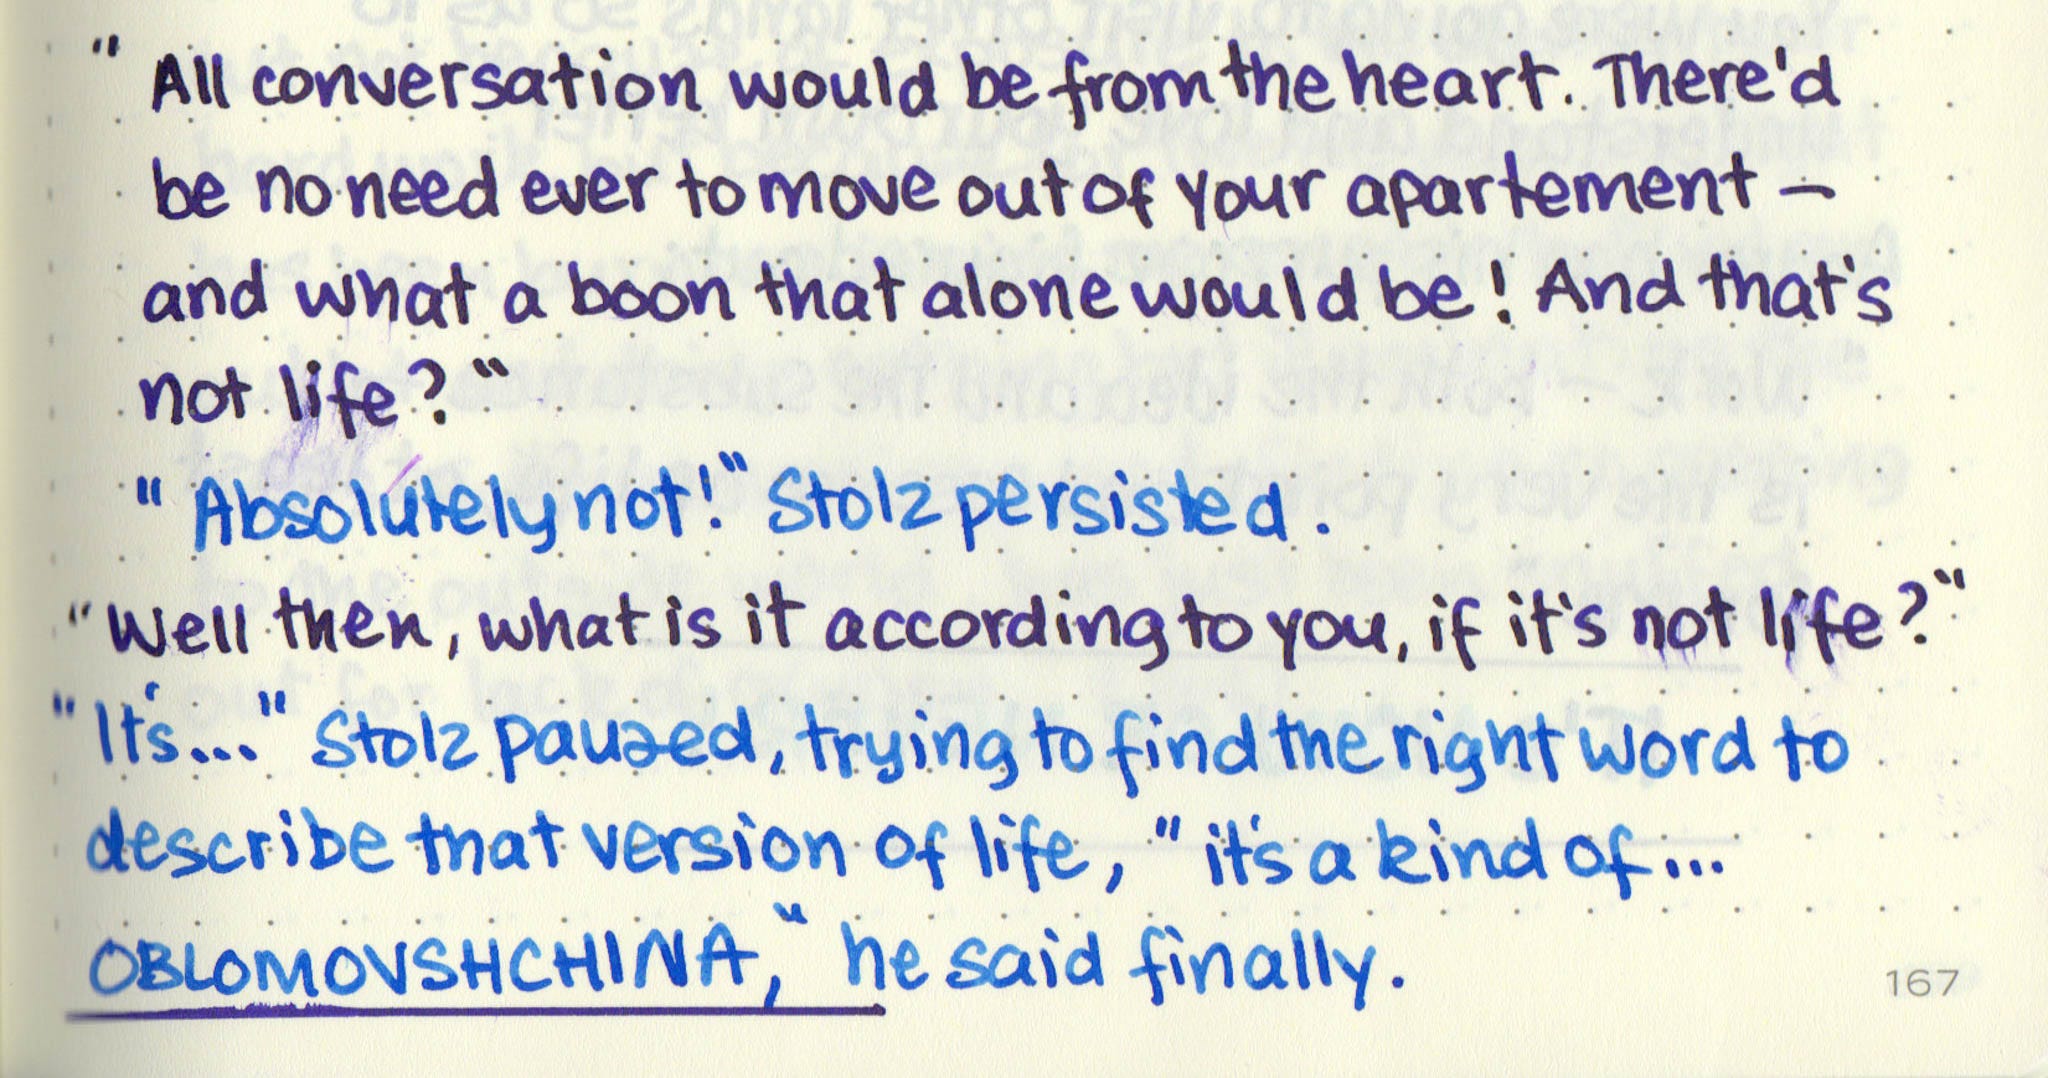 " All conversation would be from the heart. There'd
be no need ever to move out of your apartement –
and what a boon that alone would be! And that's
not life?"
" Absolutely not!" Stolz persisted.
"Well then, what is it according to you, if it's not life?"
"It's..." Stolz paused, trying to find the right word to
describe that version of life, "it's a kind of...
OBLOMOVSHCHINA," he said finally.
167